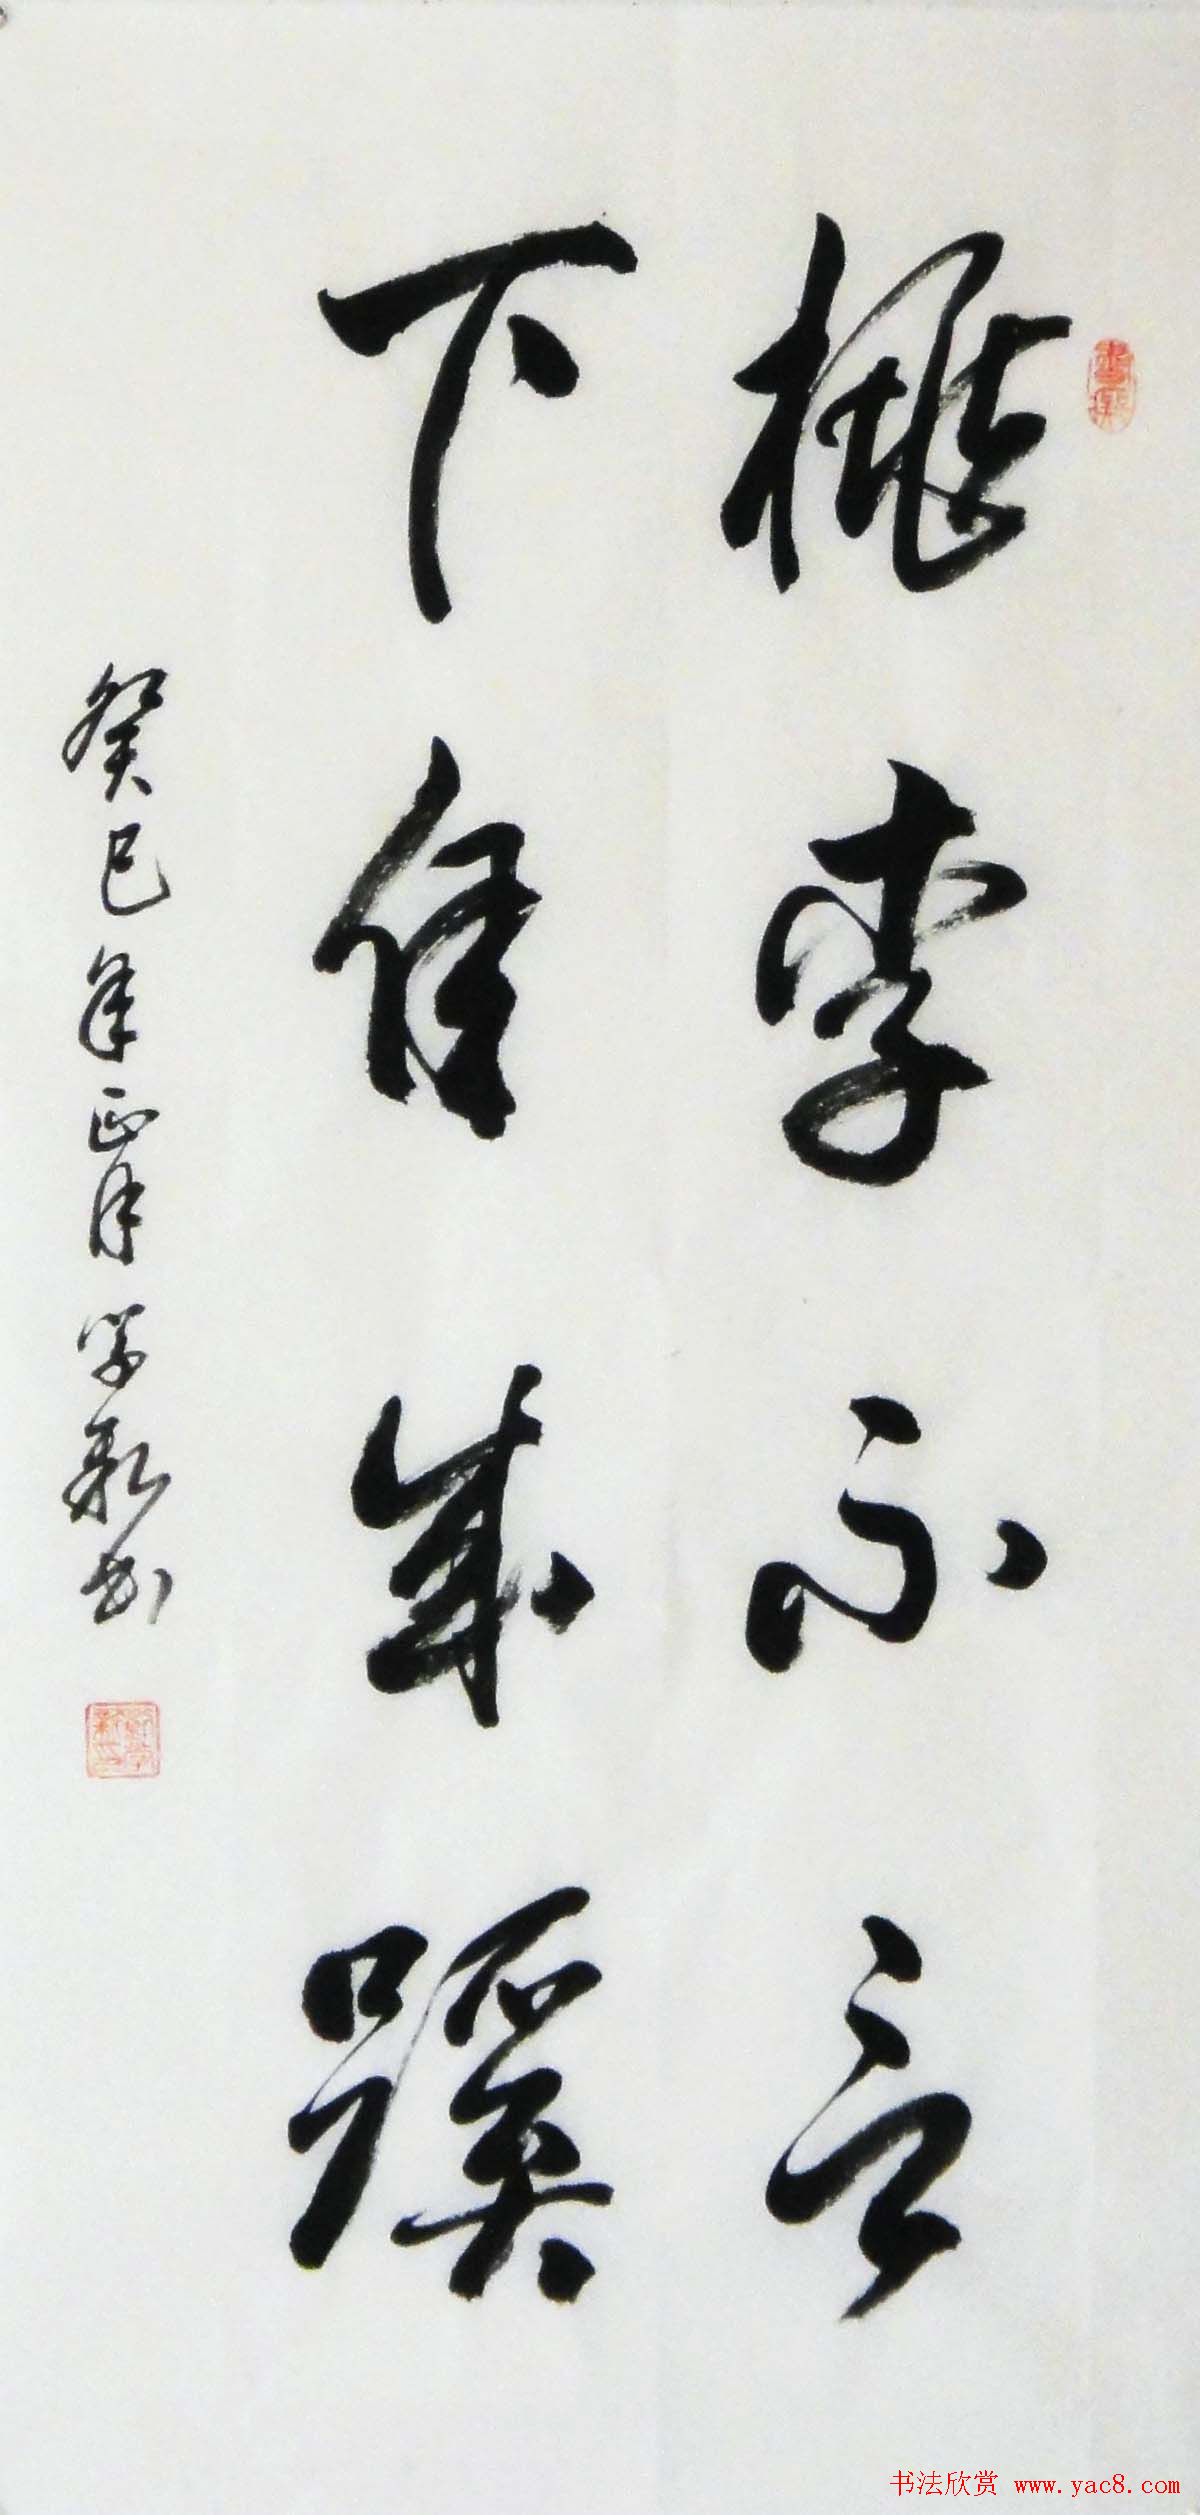 桃李不言
下自成蹊
癸巳年正月学新书
书法欣赏 www.yac8.com